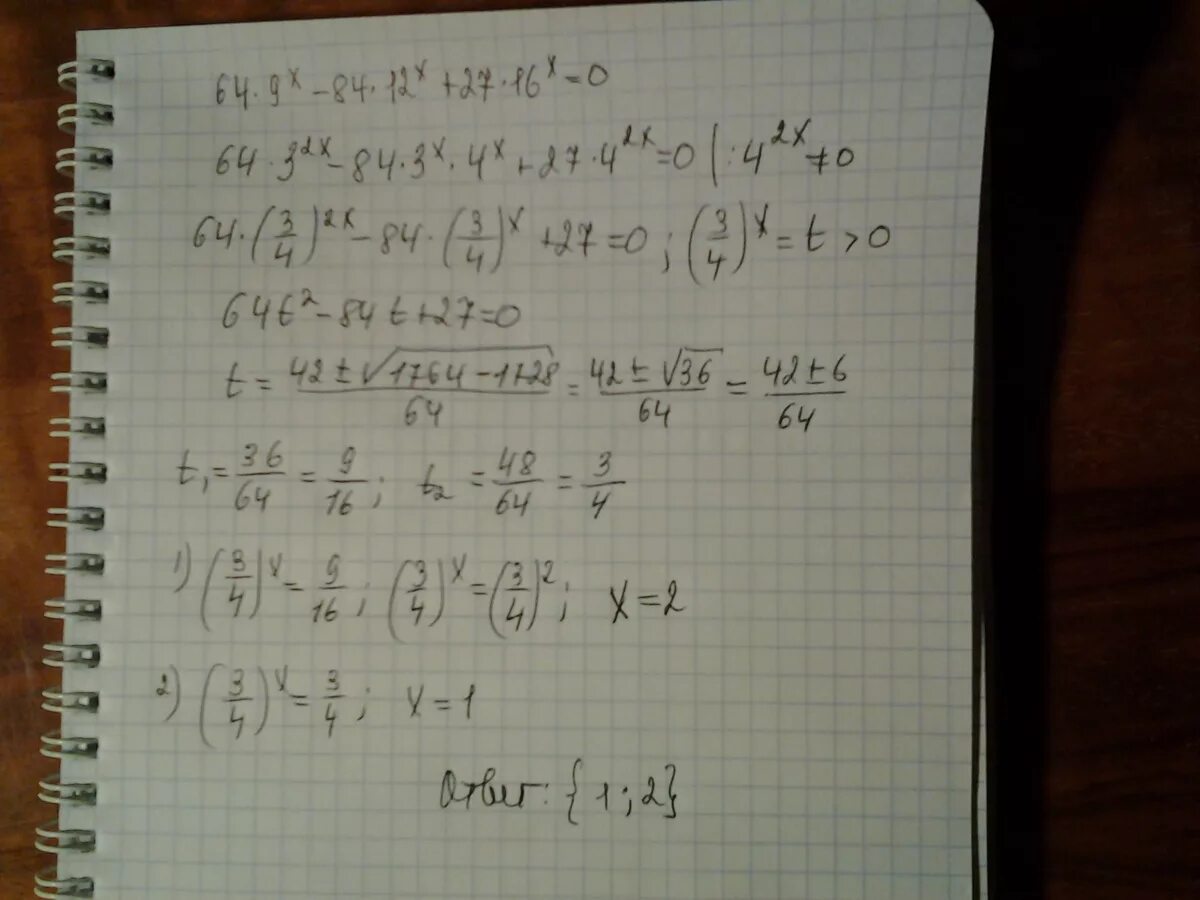 64·9^x – 84·12^x + 27·16^x = 0
64·3^2x – 84·3^x·4^x + 27·4^2x = 0 | :4^2x ≠ 0
64·(3/4)^2x – 84·(3/4)^x + 27 = 0 ; (3/4)^x = t > 0
64t² – 84t + 27 = 0
t = (42 ± √(1764 – 1728))/64 = (42 ± √36)/64 = (42 ± 6)/64
t₁ = 36/64 = 9/16 ; t₂ = 48/64 = 3/4
1) (3/4)^x = 9/16 ; (3/4)^x = (3/4)² ; x = 2
2) (3/4)^x = 3/4 ; x = 1
Ответ: {1 ; 2}